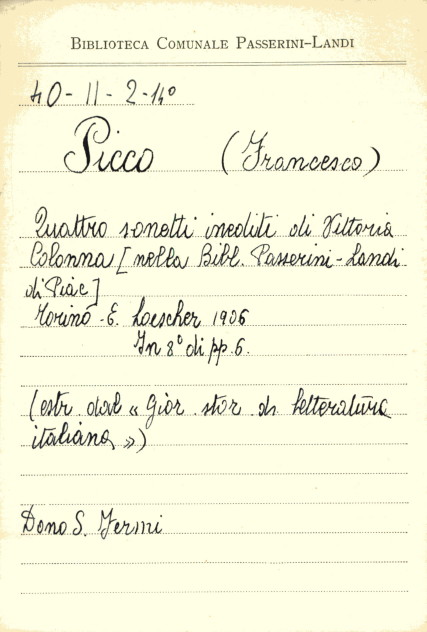 BIBLIOTECA COMUNALE PASSERINI-LANDI
40-II-2-14°
Picco (Francesco)
Quattro sonetti inediti di Vittoria
Colonna [nella Bibl. Passerini-Landi
di Piac]
Torino-E. Loescher 1906
In 8° di pp. 6.
(estr. dal « Gior. stor di letteratura
italiana »)
Dono S. Fermi